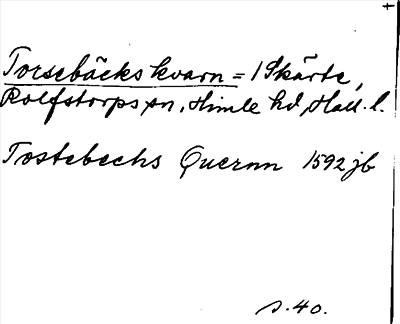 Torsebäcks kvarn = 1 Skärte,
Rolfstorps sn, Himle hd, Hall. l.
Tostebechs Quernn 1592 jb
s. 40.